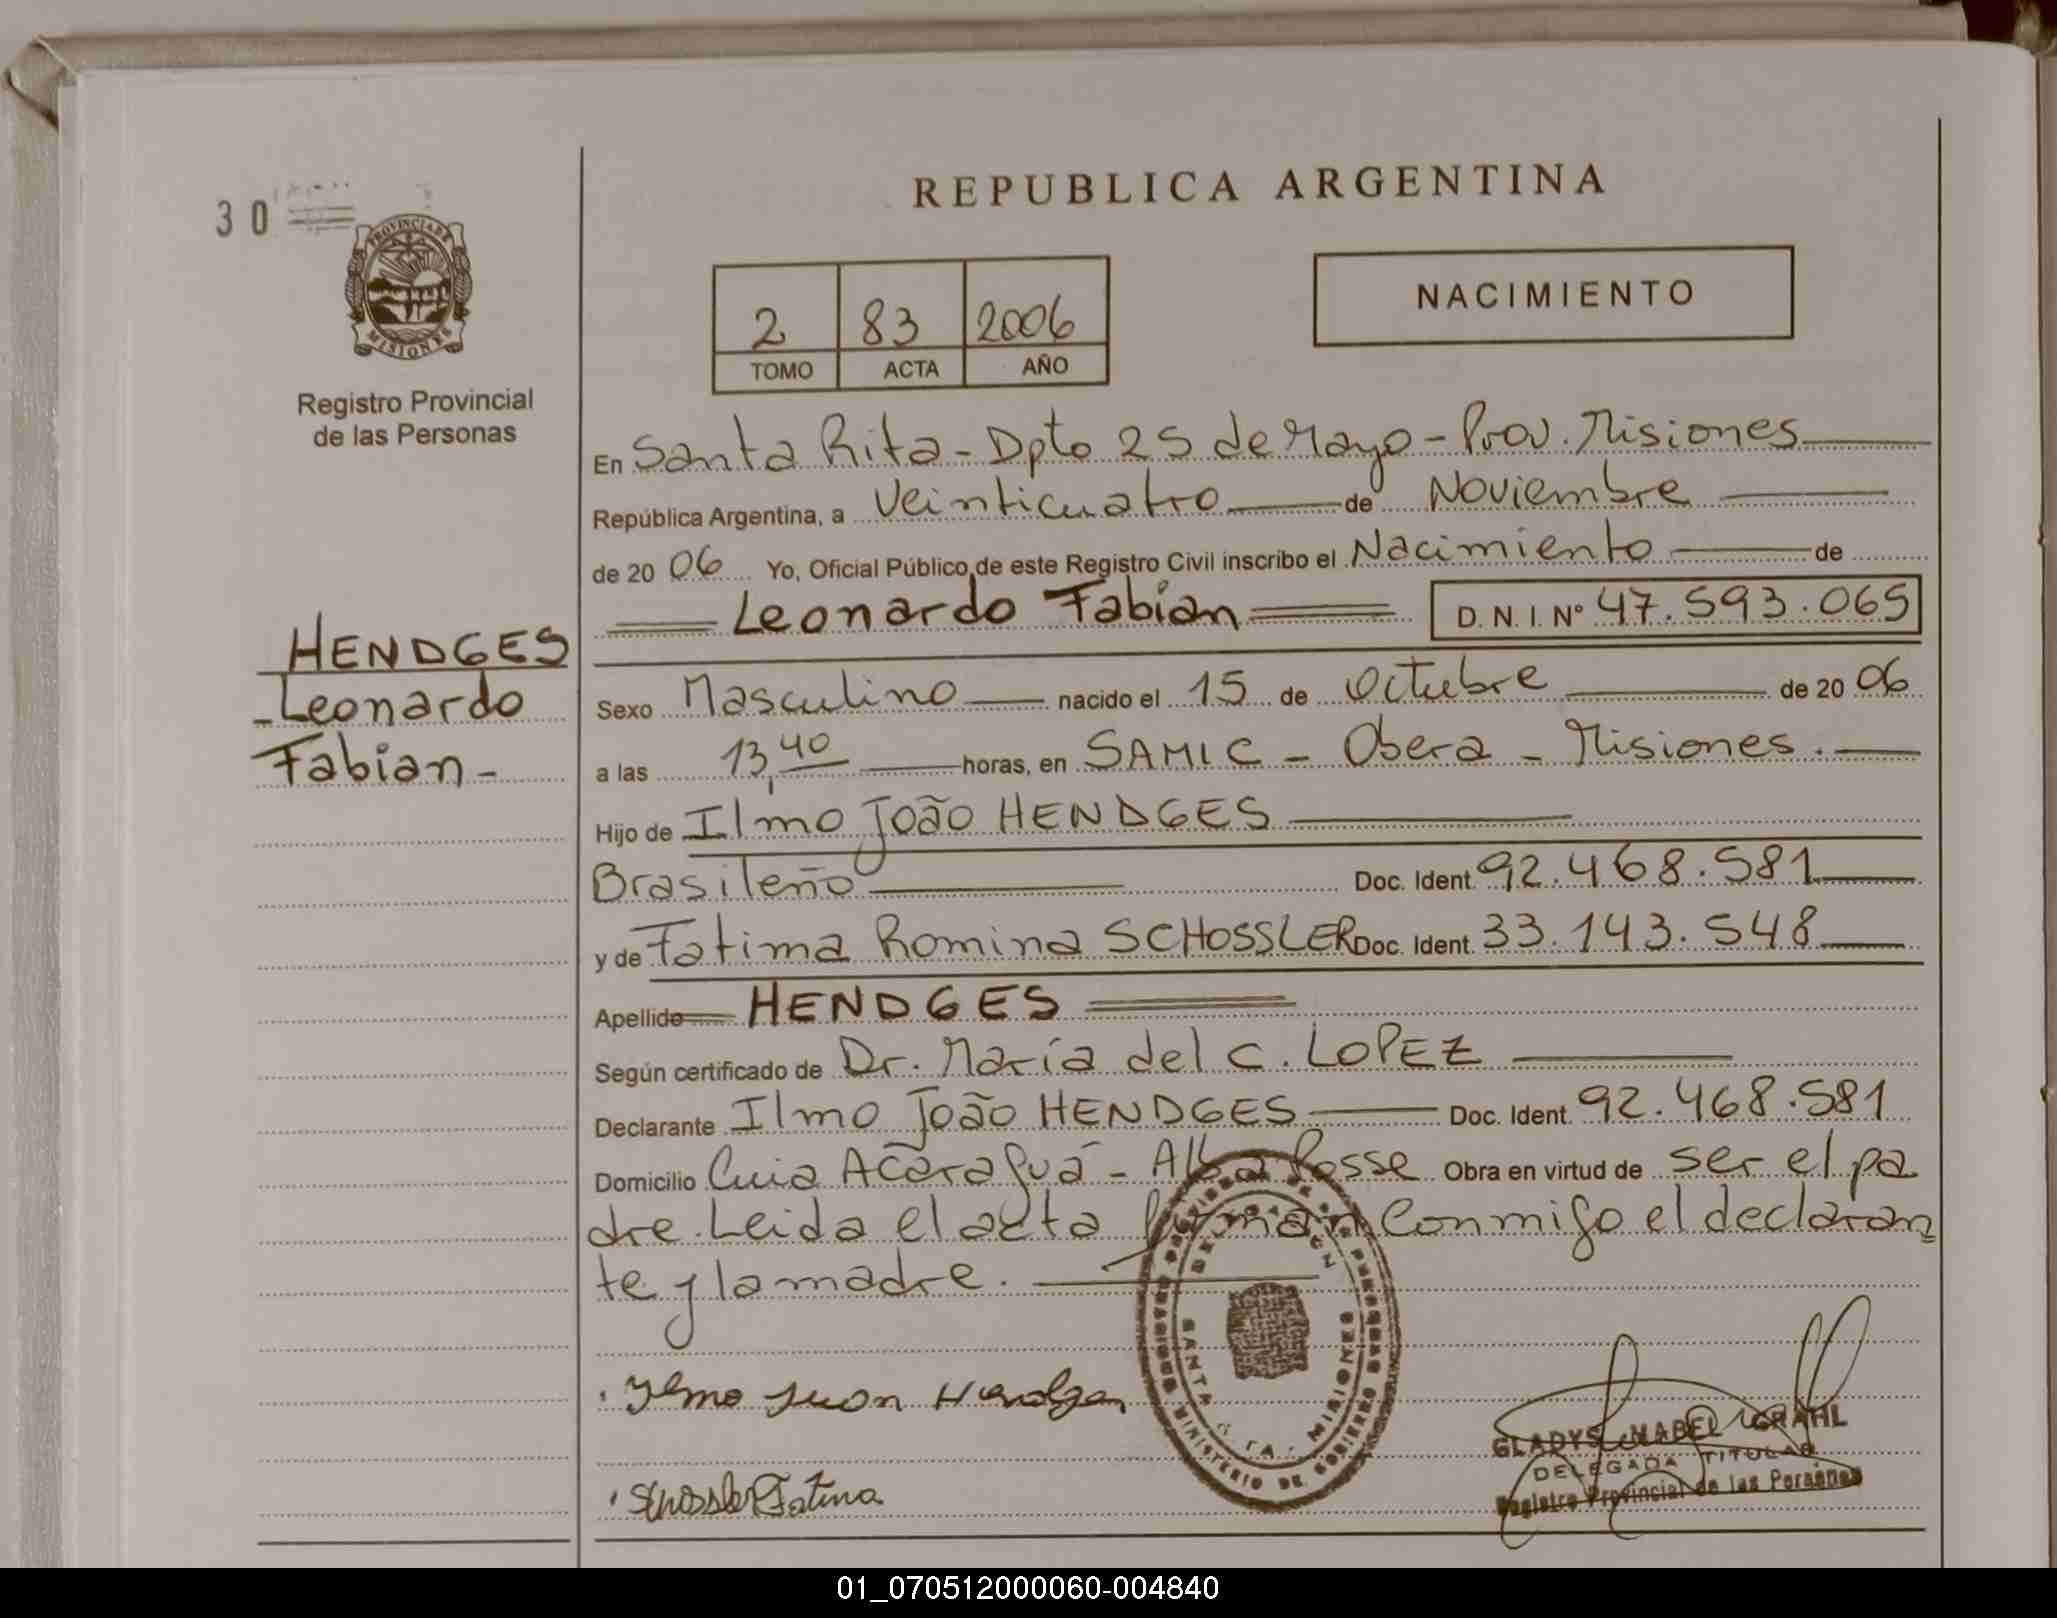 REPUBLICA ARGENTINA
30
PROVINCIA DE
MISIONES
Registro Provincial
de las Personas
2 83 2006
TOMO ACTA AÑO
NACIMIENTO
En Santa Rita - Dpto 25 de Mayo - Prov. Misiones
República Argentina, a Veinticuatro de Noviembre
de 20 06 Yo, Oficial Público de este Registro Civil inscribo el Nacimiento de
Leonardo Fabian D.N.I. Nº 47.593.065
HENDGES
Leonardo
Fabian -
Sexo Masculino nacido el 15 de Octubre de 20 06
a las 13,40 horas, en SAMIC - Obera - Misiones.
Hijo de Ilmo João HENDGES
Brasileño Doc. Ident. 92.468.581
y de Fatima Romina SCHOSSLER Doc. Ident. 33.143.548
Apellido HENDGES
Según certificado de Dr. María del C. LOPEZ
Declarante Ilmo João HENDGES Doc. Ident. 92.468.581
Domicilio Cuia Acaraguá - Alba Posse Obra en virtud de ser el pa
dre. Leida el acta firman conmigo el declaran
te y la madre.
Schossler Fatima
GLADYS MABEL GRAHL
DELEGADA TITULAR
Registro Provincial de las Personas
MINISTERIO DE GOBIERNO
MISIONES
01_070512000060-004840